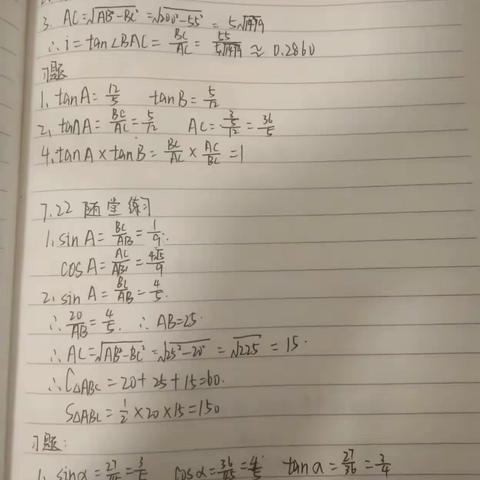 3. AC=√AB²-BC² =√200²-55² = 5√1479
∴ i = tan∠BAC = BC/AC = 55/5√1479 ≈ 0.2860
习题
1. tanA = 12/5 tanB = 5/12
2. tanA = BC/AC = 5/12 AC = 3/(5/12) = 36/5
4. tanA × tanB = BC/AC × AC/BC = 1
7.22 随堂练习
1. sinA = BC/AB = 1/9.
cosA = AC/AB = 4√5/9
2. sinA = BC/AB = 4/5.
∴ 20/AB = 4/5. ∴ AB=25.
∴ AC=√AB²-BC² =√25²-20² = √225 = 15.
∴ C△ABC = 20+25+15=60.
S△ABC = 1/2 × 20 × 15 = 150
习题:
1. sinα = 27/45 = 3/5 cosα = 36/45 = 4/5 tanα = 27/36 = 3/4